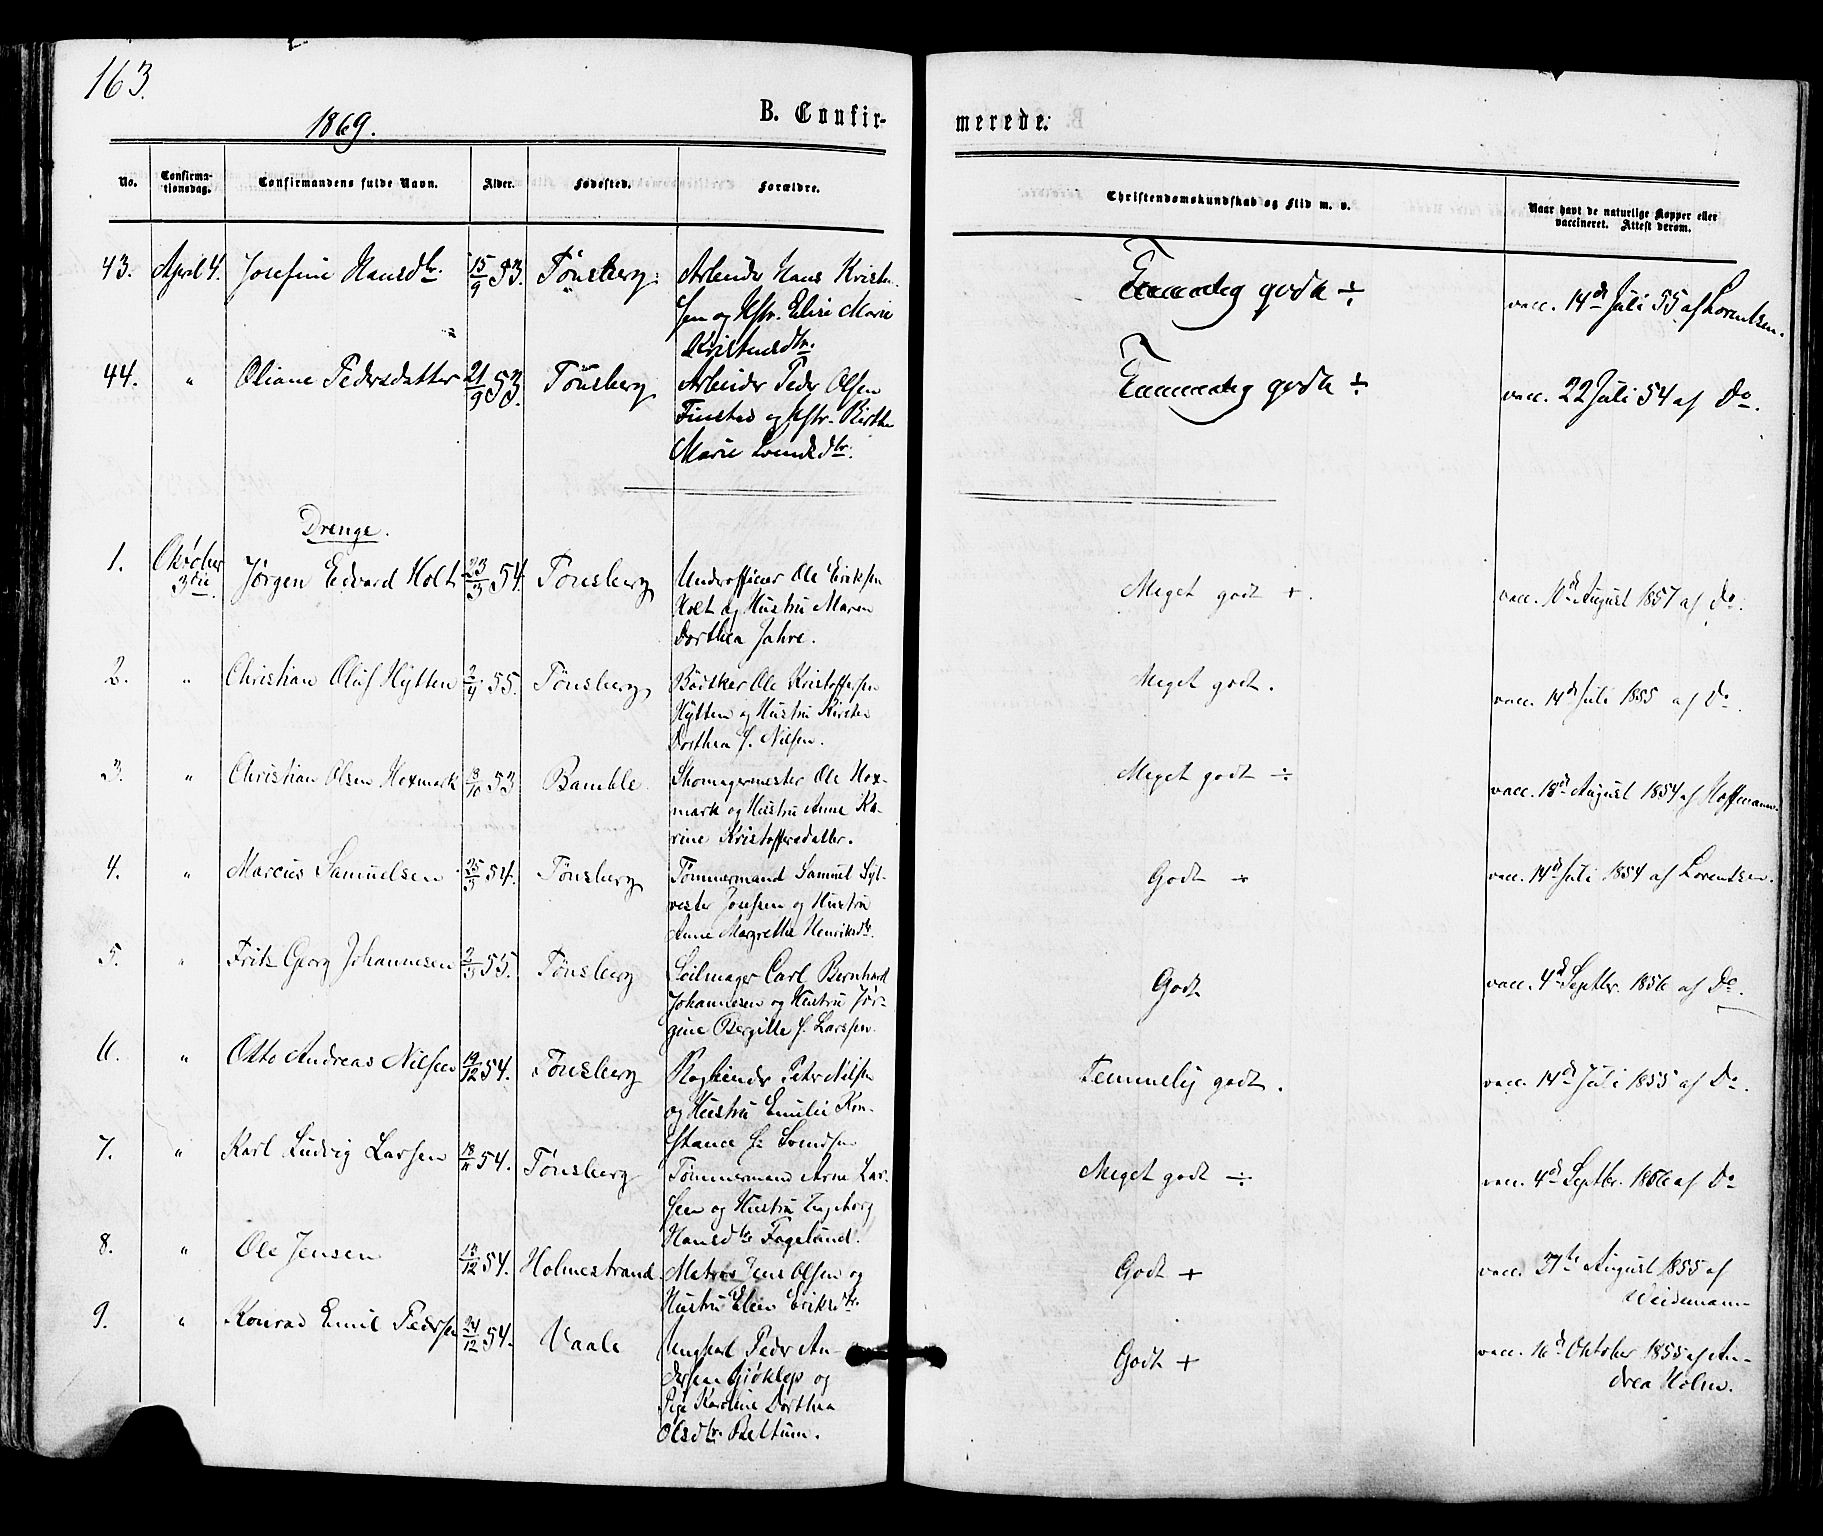 163.
1869.
B. Confir-
merede.
No.
Confirma-
tionsdag.
Confirmandens fulde Navn.
Alder.
Fødested.
Forældre.
Christendomskundskab og Flid m. v.
Naar havt de naturlige Kopper eller
vaccineret. Attest derom.
43. April 4. Josefine Hansdtr. 15/9 53. Tönsberg. Arbeider Hans Kristen-
sen og Hstr. Elise Marie
Kristensdtr.
Temmelig godt ÷
vacc. 14de Juli 55 af Lorentsen.
44. " Oliane Pedersdatter 21/9 53. Tönsberg Arbeider Peder Olsen
Finstad og Hstr. Birthe
Marie Svendsdtr.
Temmelig godt ÷
vacc. 22 Juli 54 af Do.
Drenge.
1. Oktober
3die
Jørgen Edvard Holt 23/3 54. Tønsberg Underofficer Ole Eriksen
Holt og Hustru Maren
Dorthea Jahre.
Meget godt +.
vacc. August 1857 af Do.
2. " Christian Oluf Hytten 2/4 55. Tønsberg Bødker Ole Kristoffersen
Hytten og Hustru Kirsten
Dorthea f. Nilsen.
Meget godt.
vacc. 14de Juli 1855 af Do.
3. " Christian Olsen Hoxmark 8/10 53 Bamble. Skomagermester Ole Hox-
mark og Hustru Anne Ka-
rine Kristoffersdatter.
Meget godt ÷
vacc. 18de August 1854 af Hoffmann.
4. " Marcus Samuelsen 25/5 54. Tønsberg Tømmermand Samuel Syl-
vester Josefsen og Hustru
Anne Margrethe Henriksdtr.
Godt ÷
vacc. 14de Juli 1854 af Lorentsen.
5. " Fritz Georg Johannesen 2/5 55. Tønsberg Seilmager Carl Bernhard
Johannesen og Hustru Jør-
gine Bergitte f. Larssen.
Godt
vacc. 4de Septbr. 1856 af Do.
6. " Otto Andreas Nilsen 19/12 54. Tønsberg Petr Nilsen
og Hustru Emilie Kon-
stance f: Svendsen
Temmelig godt.
vacc. 14de Juli 1855 af Do.
7. " Karl Ludvig Larsen 18/11 54. Tønsberg Tømmermand Arne Lar-
sen og Hustru Ingeborg
Hansdtr Fogelund.
Meget godt ÷
vacc. 4de Septbr. 1866 af Do
8. " Ole Jensen 54. Holmestrand. Matros Jens Olsen og
Hustru Elen Eriksdtr.
Godt +
vacc. 27de August 1855 af
Weidemann
9. " Konrad Emil Pedersen 24/12 54. Vaale Ungkarl Peder An-
dersen Gjöklep og
Pige Karoline Dorthea
Olsdtr. Beltum.
Godt +
vacc. 16de Oktober 1855 af An-
drea Holm.